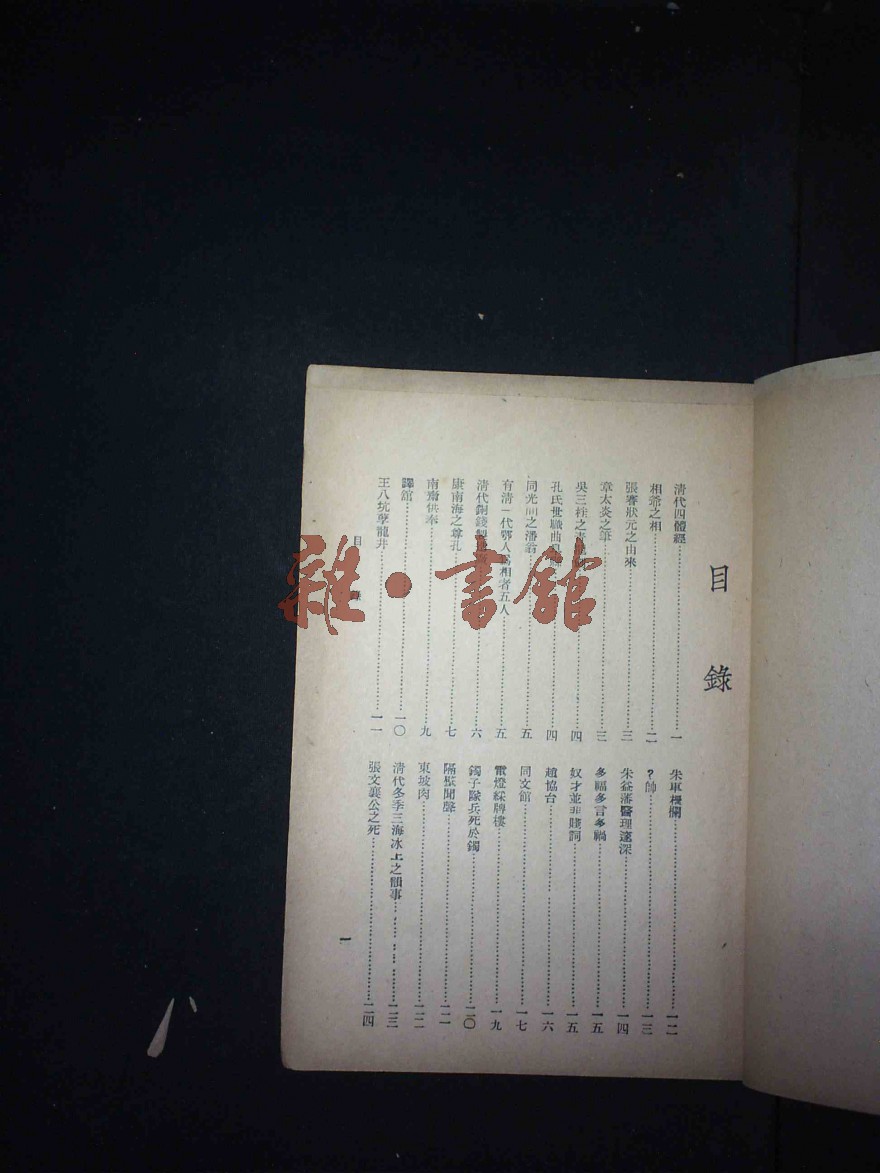 目錄
清代四體經一
相爺之相二
張謇狀元之由來三
章太炎之筆三
吳三桂之四
孔氏世職曲四
同光間之潘五
有清一代鄂人爲相者五人五
清代銅錢製六
康南海之尊孔七
南齋供奉九
譯館一〇
王八坑孽龍井一一
朱車 欄一二
?帥一三
朱益藩醫理邃深一四
多福多言多禍一五
奴才並非賤詞一五
趙協台一六
同文館一七
電燈綵牌樓一九
鐲子隊兵死於鐲二〇
隔壁聞聲二一
東坡肉二二
清代冬季三海冰上之韻事二三
張文襄公之死二四
目錄
一
雜·書館